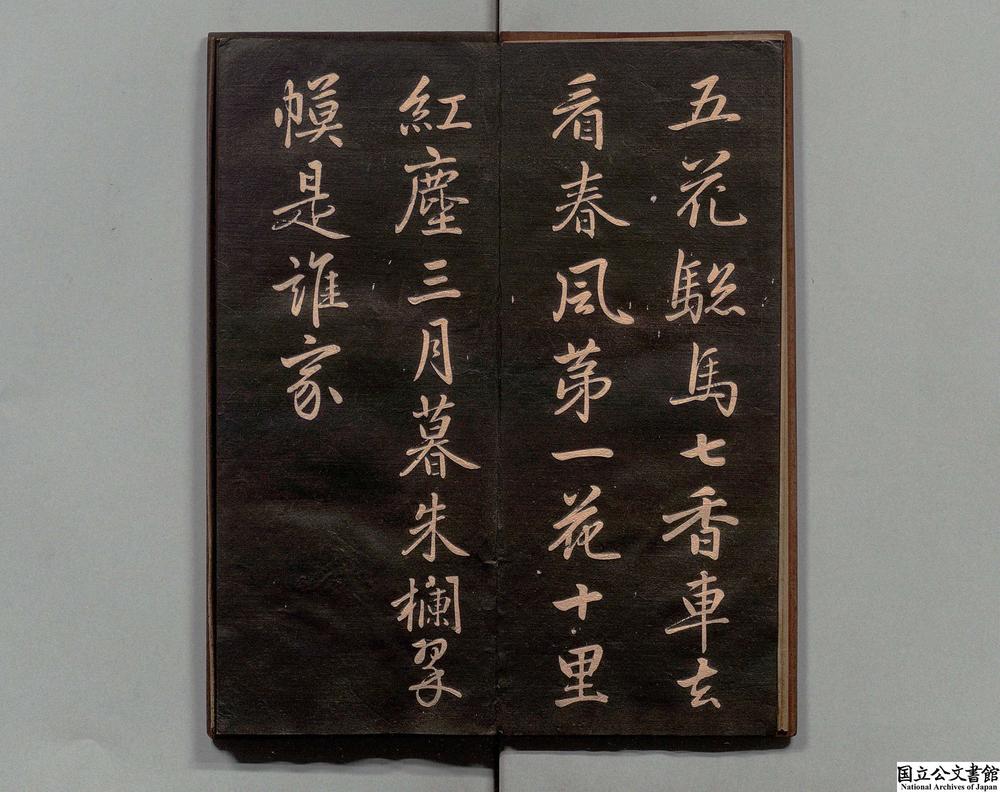 五花驄馬七香車去
看春風第一花十里
紅塵三月暮朱欄翠
幙是誰家
国立公文書館
National Archives of Japan